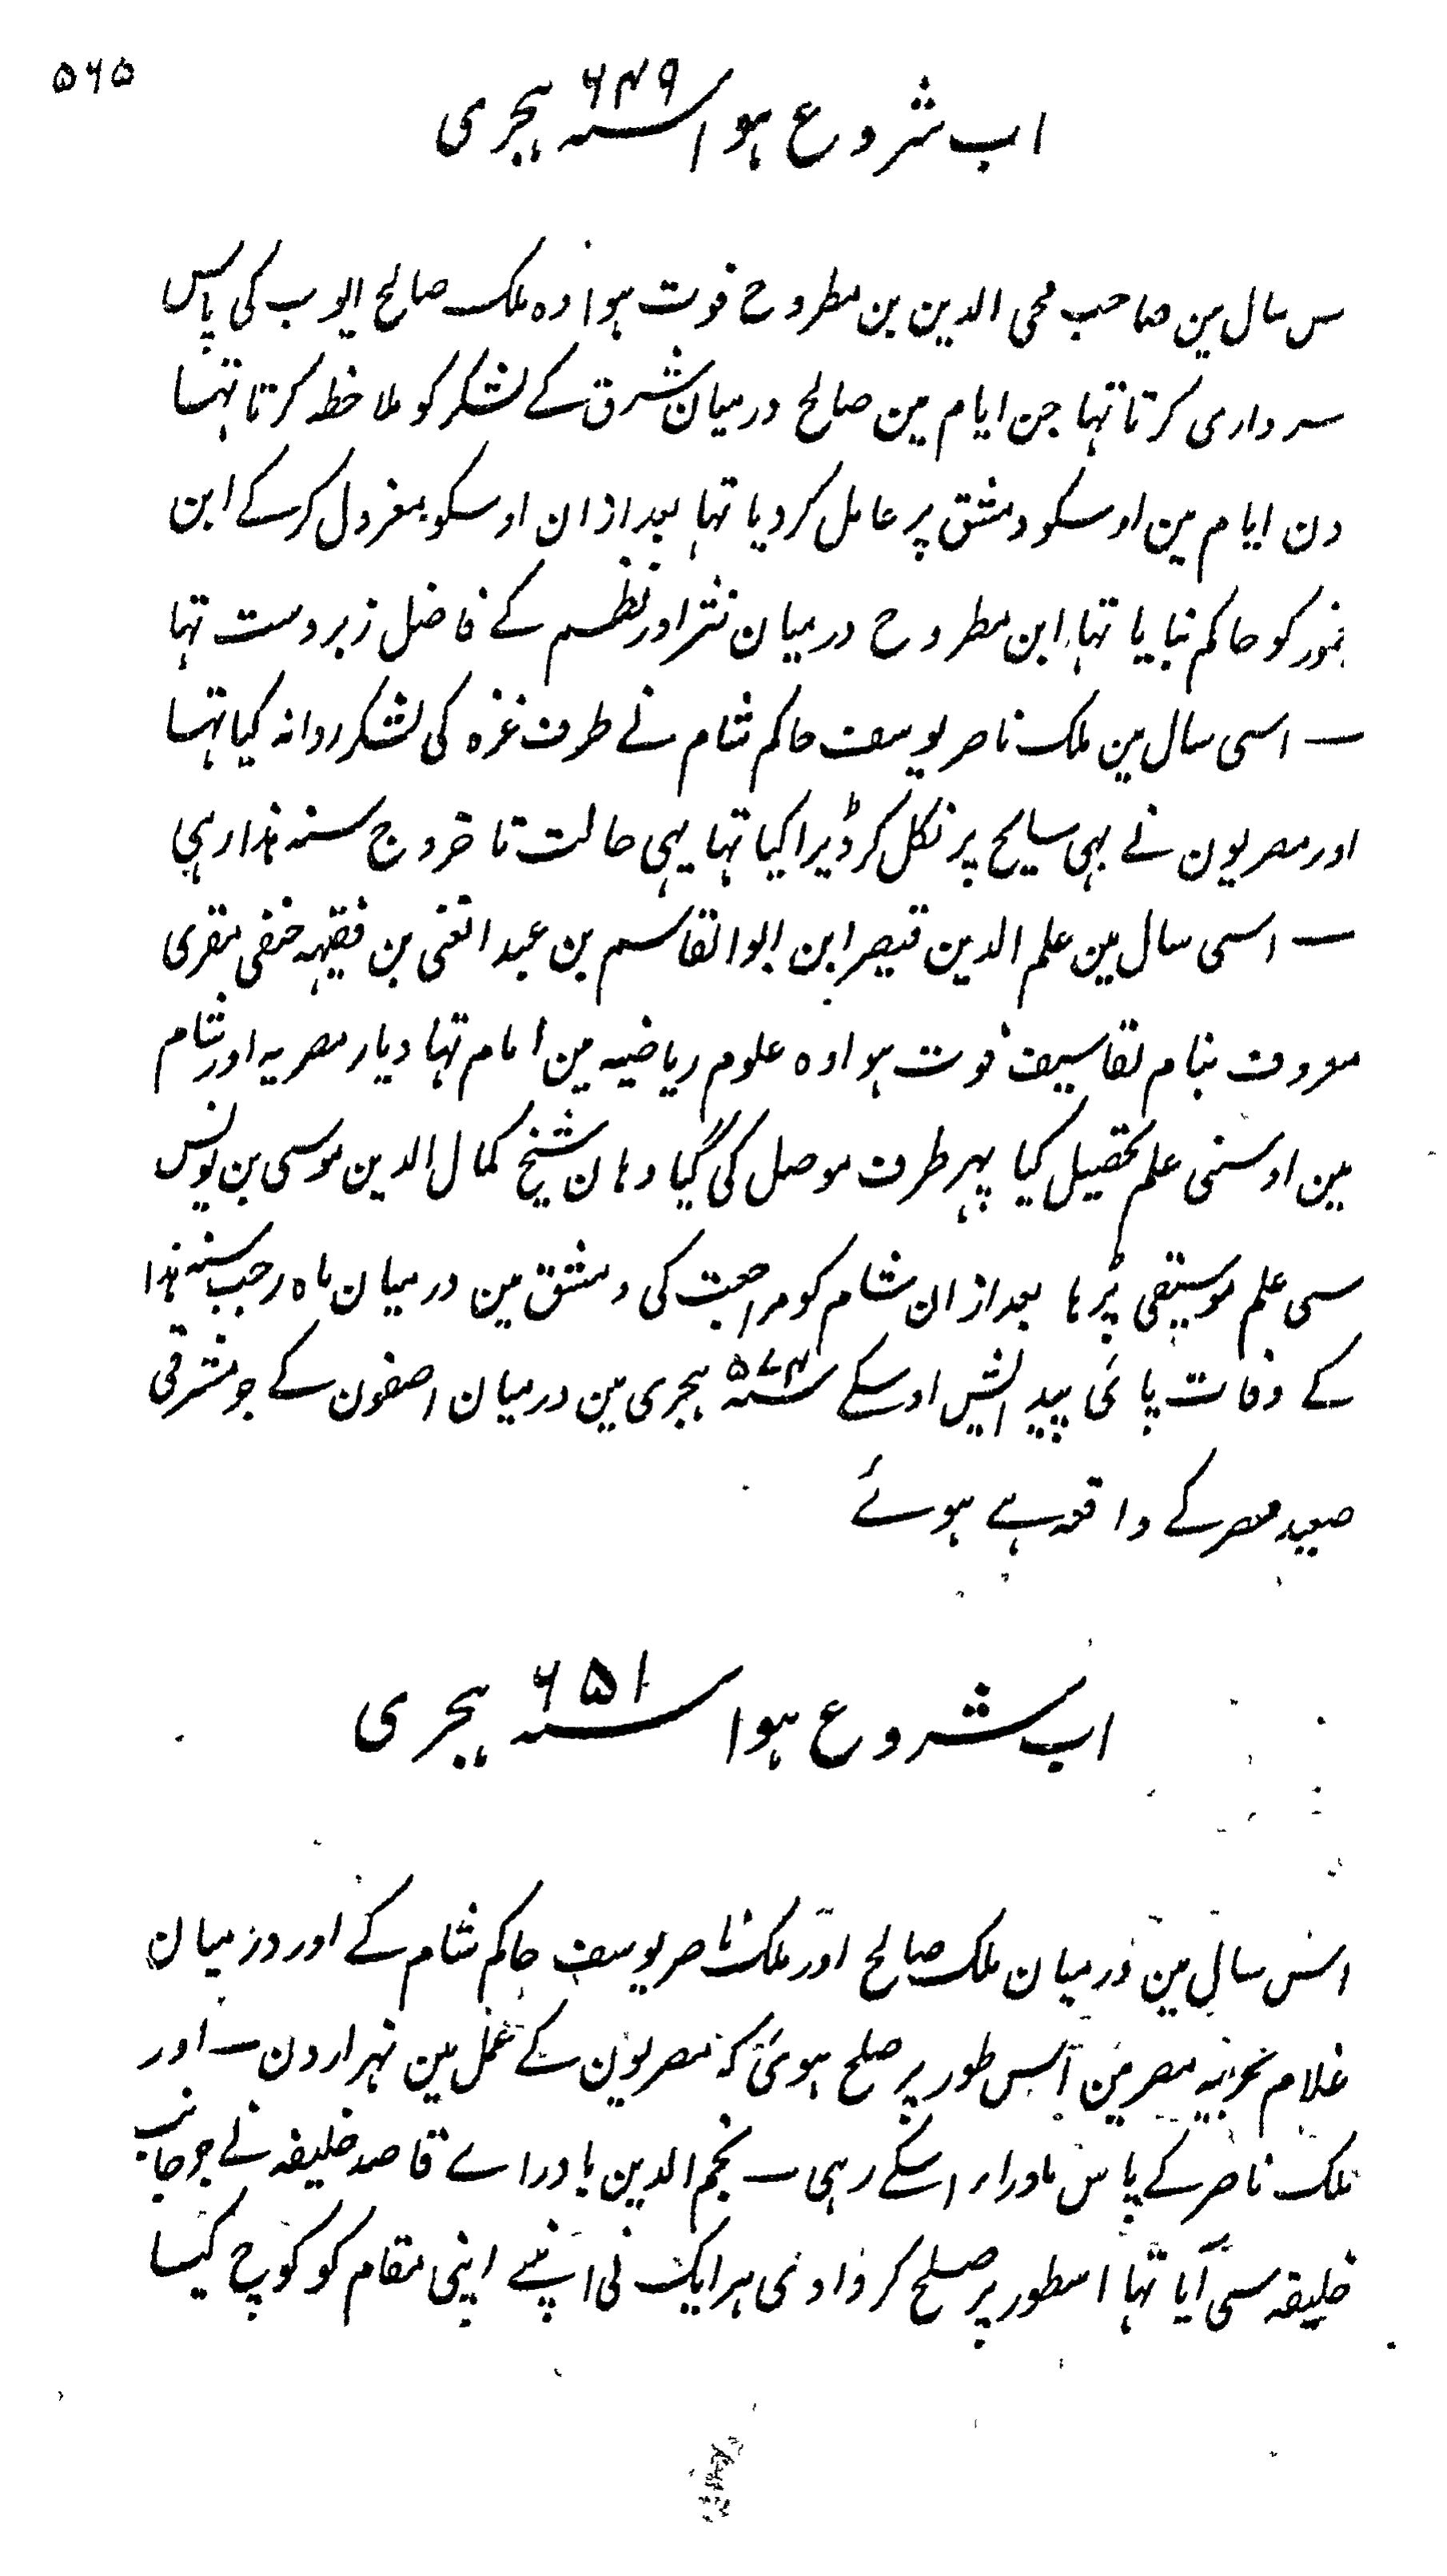 ۵۶۵
اب شروع ہوا سنہ ۶۴۹ ہجری
س سال مین صاحب محی الدین بن مطروح فوت ہوا وہ ملک صالح ایوب کی پاس
سرداری کرتا تہا جن ایام مین صالح درمیان شرق کے لشکر کو ملاحظہ کرتا تہا
دن ایام مین اوسکو دمشق پر عامل کر دیا تہا بعد ازان اوسکو معزول کر کے ابن
یغمور کو حاکم بنایا تہا ابن مطروح درمیان نثر اور نظم کے فاضل زبردست تہا
— اسی سال مین ملک ناصر یوسف حاکم شام نے طرف غزہ کی لشکر روانہ کیا تہا
اور مصریون نے بہی سایح پر نکل کر ڈیرا کیا تہا یہی حالت تا خروج سنہ ہذا رہی
— اسی سال مین علم الدین قیصر ابن ابو القاسم بن عبد الغنی بن فقیہہ حنفی مقری
معروف بنام تعاسیف فوت ہوا وہ علوم ریاضیہ مین امام تہا دیار مصریہ اور شام
مین اوسنی علم تحصیل کیا پہر طرف موصل کی گیا وہان شیخ کمال الدین موسی بن یونس
سی علم موسیقی پڑہا بعد ازان شام کو مراجعت کی دمشق مین درمیان ماہ رجب سنہ ہذا
کے وفات پائی پیدایش اوسکے سنہ ۵۷۴ ہجری مین درمیان اصفون کے جو مشرقی
صعید مصر کے واقعہ ہے ہوئے
اب شروع ہوا سنہ ۶۵۱ ہجری
اس سال مین درمیان ملک صالح اور ملک ناصر یوسف حاکم شام کے اور درمیان
غلام بحریہ مصر مین اس طور پر صلح ہوئی کہ مصریون کے عمل مین نہر اردن — اور
ملک ناصر کے پاس ماوراء اسکے رہی — نجم الدین بادراے قاصد خلیفہ نے جو جانب
خلیفہ سی آیا تہا اسطور پر صلح کروا دی ہر ایک نی اپنے اپنی مقام کو کوچ کیا